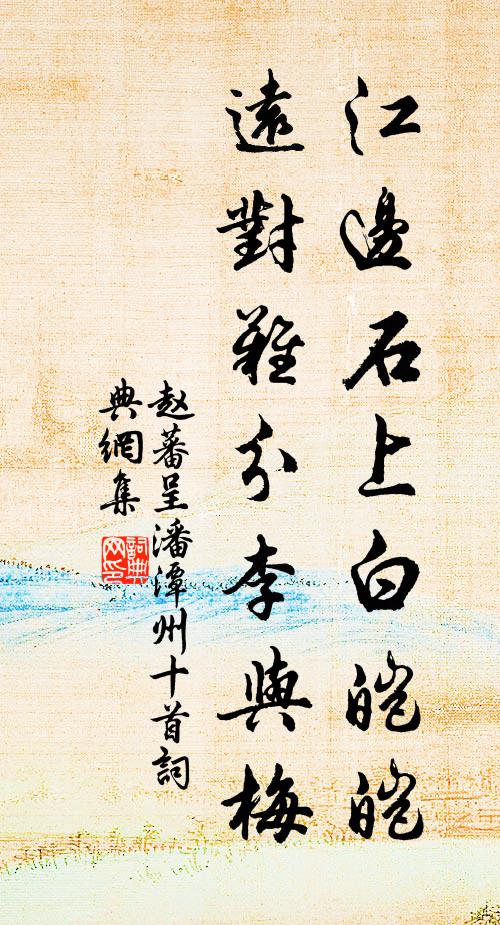 江邊石上白皚皚
遠對難分李與梅
赵蕃呈潘潭州十首詞
典網集
詞典
网印